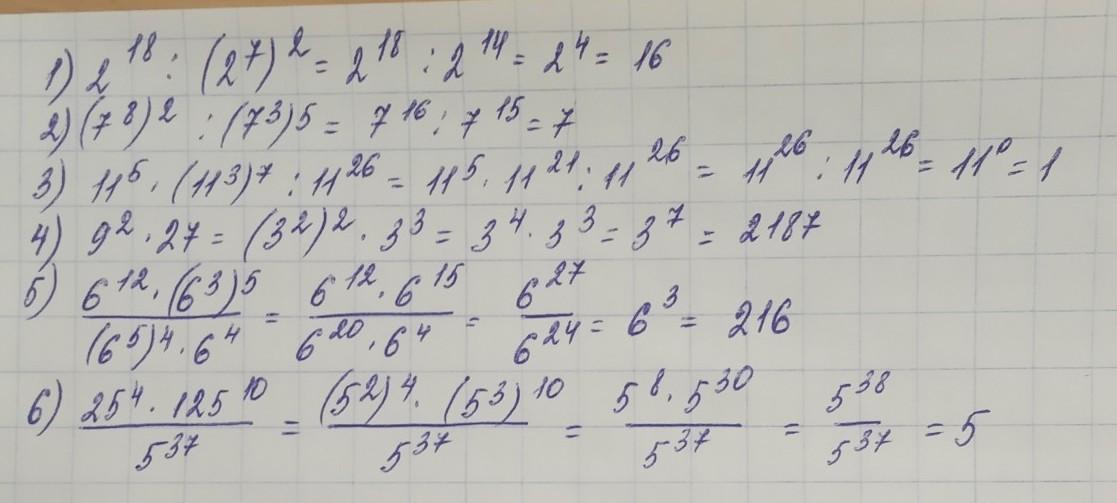 1) 2^18 : (2^7)^2 = 2^18 : 2^14 = 2^4 = 16
2) (7^8)^2 : (7^3)^5 = 7^16 : 7^15 = 7
3) 11^5 · (11^3)^7 : 11^26 = 11^5 · 11^21 : 11^26 = 11^26 : 11^26 = 11^0 = 1
4) 9^2 · 27 = (3^2)^2 · 3^3 = 3^4 · 3^3 = 3^7 = 2187
5) (6^12 · (6^3)^5) / ((6^5)^4 · 6^4) = (6^12 · 6^15) / (6^20 · 6^4) = 6^27 / 6^24 = 6^3 = 216
6) (25^4 · 125^10) / 5^37 = ((5^2)^4 · (5^3)^10) / 5^37 = (5^8 · 5^30) / 5^37 = 5^38 / 5^37 = 5